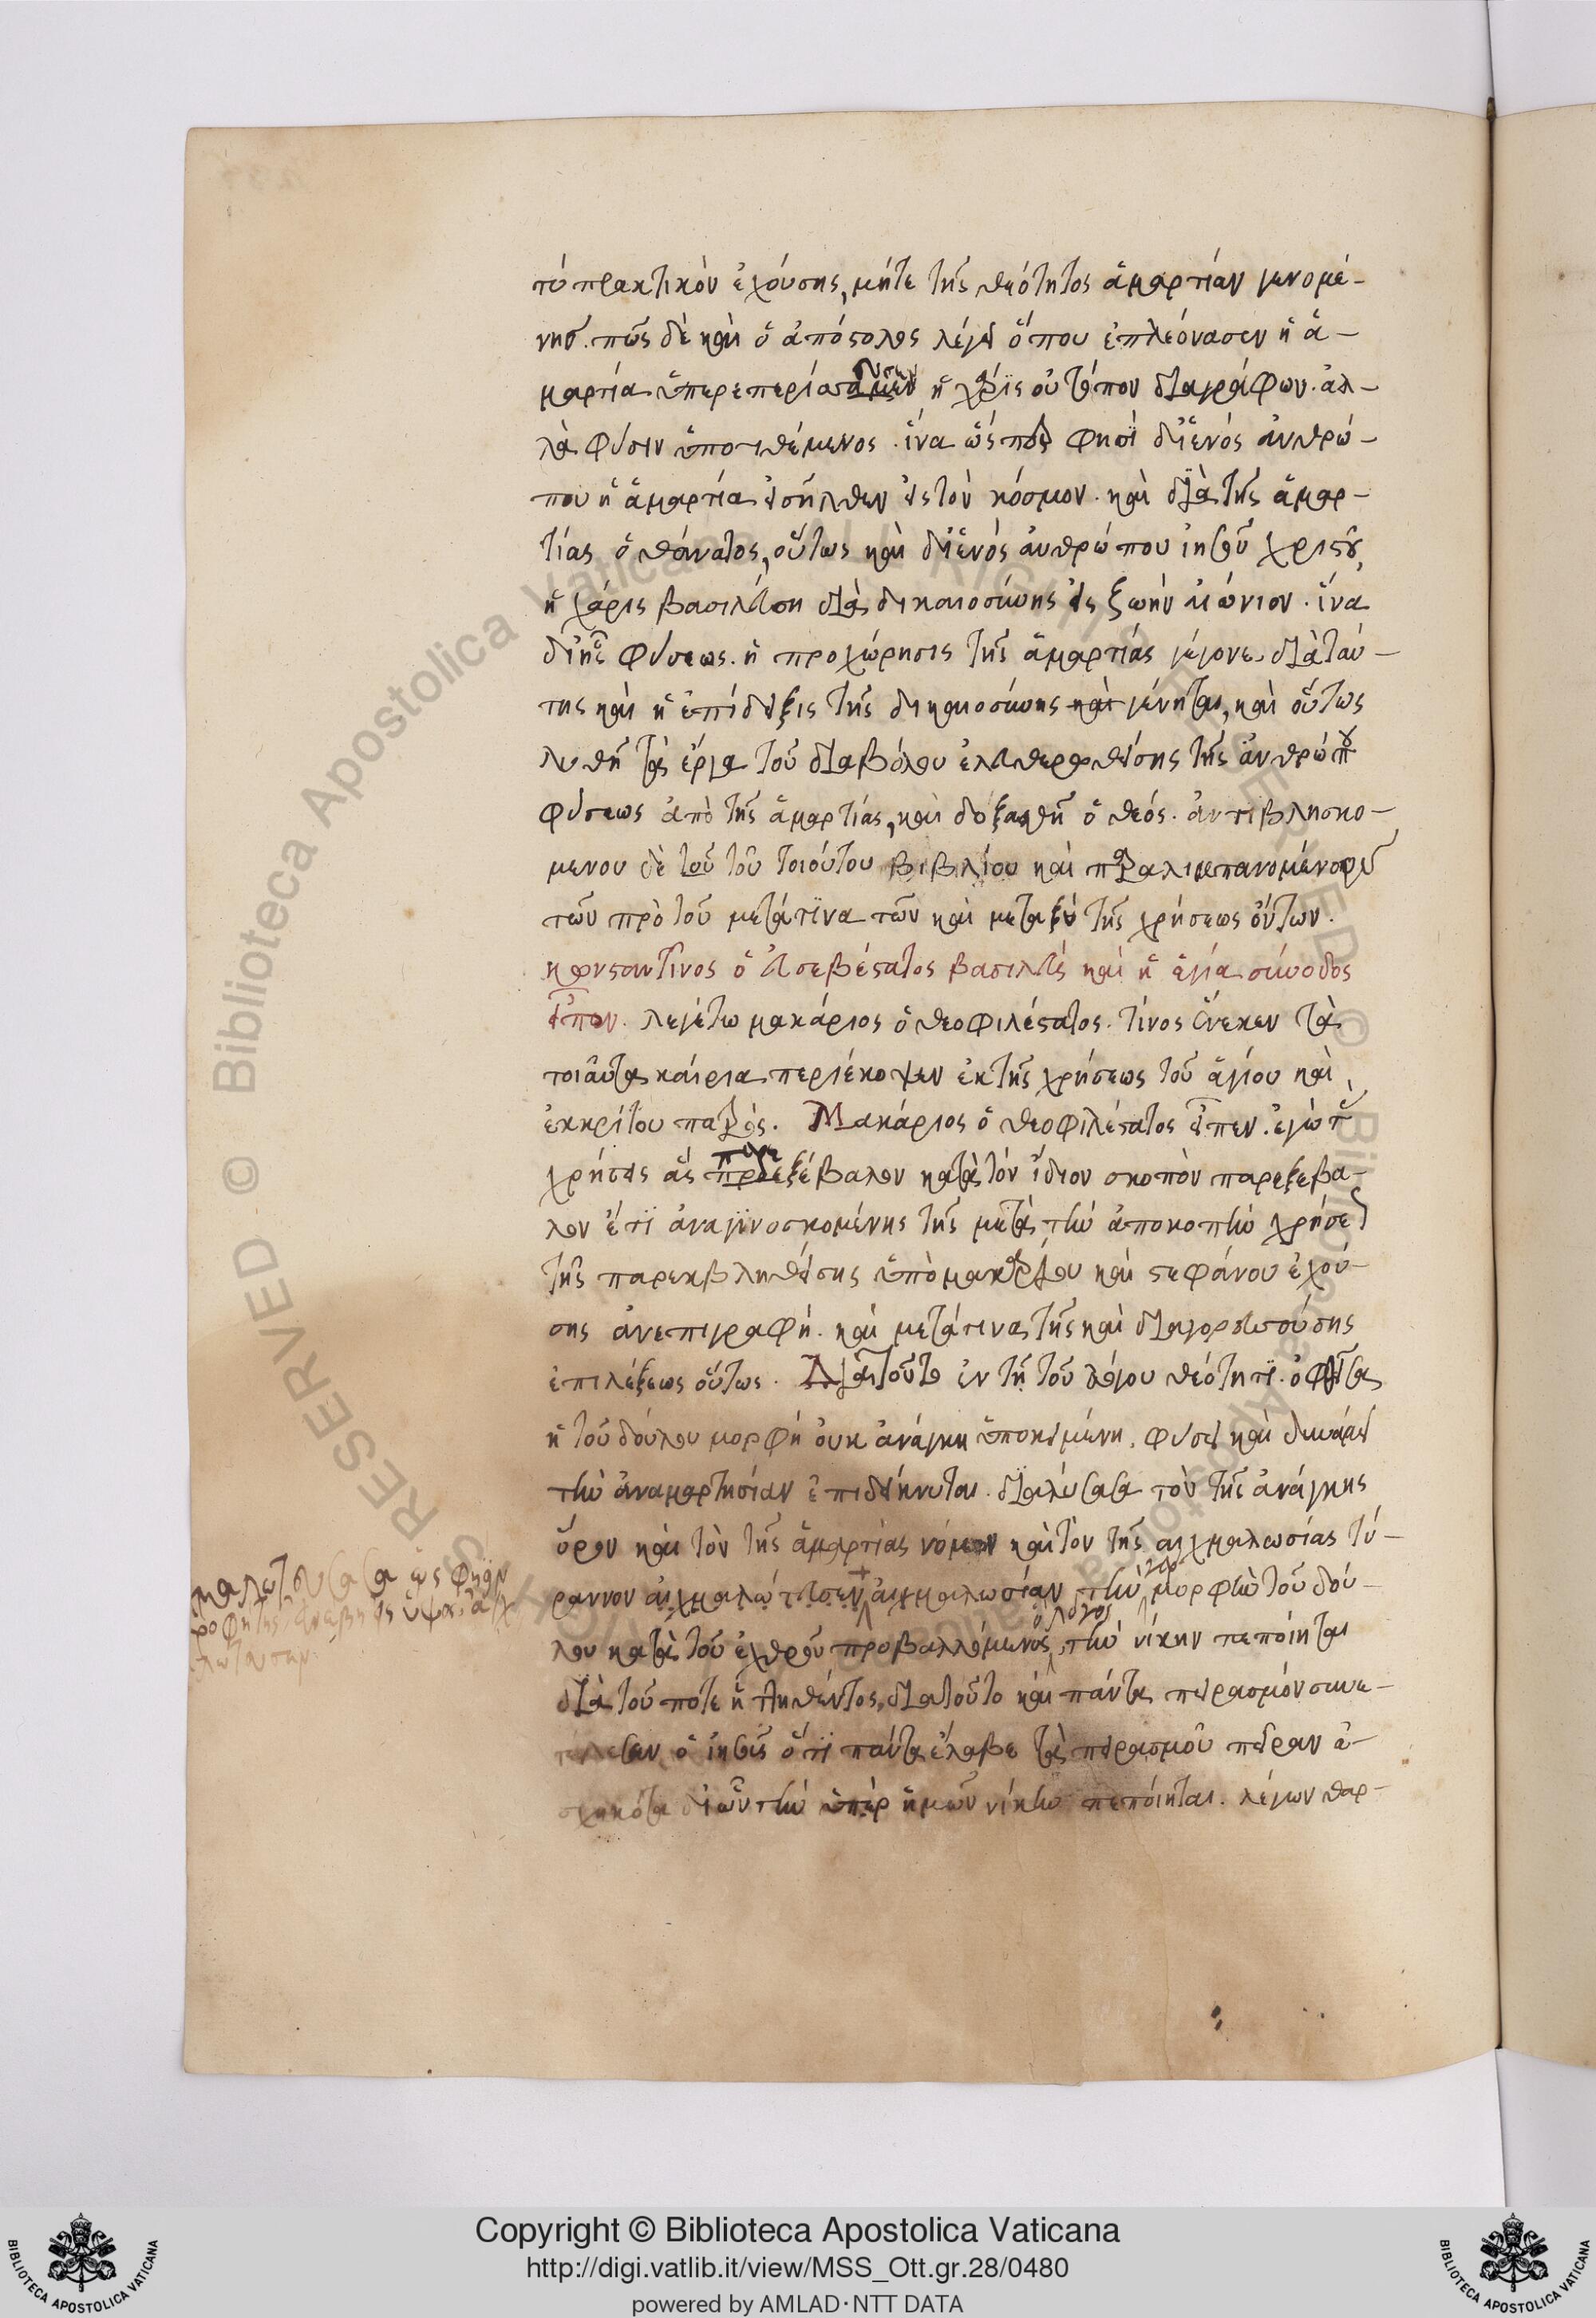 τὸ πρακτικὸν ἐχούσης, μήτε τῆς θεότητος ἁμαρτίαν γενομέ-
νης. πῶς δὲ καὶ ὁ ἀπόστολος λέγει ὅπου ἐπλεόνασεν ἡ ἁ-
μαρτία ὑπερεπερίσσευσεν ἡ χάρις οὐ τόπον διαγράφων. ἀλ-
λὰ φύσιν ὑποτιθέμενος. ἵνα ὥσπερ φησὶ δι' ἑνός ἀνθρώ-
που ἡ ἁμαρτία εἰσῆλθεν εἰς τὸν κόσμον. καὶ διὰ τῆς ἁμαρ-
τίας ὁ θάνατος, οὕτως καὶ δι' ἑνός ἀνθρώπου ἰησοῦ χριστοῦ,
ἡ χάρις βασιλεύση διὰ δικαιοσύνης εἰς ζωὴν αἰώνιον. ἵνα
δι' ἧς φύσεως. ἡ προχώρησις τῆς ἁμαρτίας γέγονε, διὰ ταύ-
της καὶ ἡ ἐπίδειξις τῆς δικαιοσύνης καὶ γένηται, καὶ οὕτως
λυθῇ τὰ ἔργα τοῦ διαβόλου ἐλευθερωθείσης τῆς ἀνθρώπου
φύσεως ἀπὸ τῆς ἁμαρτίας, καὶ δοξασθῇ ὁ θεός. ἀντιβλησκο-
μενου δὲ τοῦ τοῦ τοιούτου βιβλίου καὶ παραλιμπανομένου
τῶν πρὸ τοῦ μετά τινα τῶν καὶ μεταξὺ τῆς χρήσεως ὄντων.
κωνσταντῖνος ὁ εὐσεβέστατος βασιλεὺς καὶ ἡ ἁγία σύνοδος
εἶπον. λεγέτω μακάριος ὁ θεοφιλέστατος. τίνος ἕνεκεν τὰ
τοιαῦτα καίρια περιέκοψεν ἐκ τῆς χρήσεως τοῦ ἁγίου καὶ
ἐκκρίτου πατρός. Μακάριος ὁ θεοφιλέστατος εἶπεν. ἐγὼ τὰς
χρήσεις ἃς παρεξέβαλον κατὰ τὸν ἴδιον σκοπὸν παρεξέβα-
λον ἔτι ἀναγινοσκομένης τῆς μετὰ τὴν ἀποκοπὴν χρήσεως
τῆς παρεκβληθείσης ὑπὸ μακαρίου καὶ στεφάνου ἐχού-
σης ἀνεπιγραφή. καὶ μετά τινας τῆς καὶ διαγορευούσης
ἐπιλέξεως οὕτως. Διὰ τοῦτο ἐν τῇ τοῦ λόγου θεότητι. ὀφθεῖσα
ἡ τοῦ δούλου μορφή οὐκ ἀνάγκη ὑποκειμένη. φύσει καὶ δυνάμει
τὴν ἀναμαρτησίαν ἐπιδείκνυται. διαλύσασα τὸν τῆς ἀνάγκης
ὅρον καὶ τὸν τῆς ἁμαρτίας νόμον καὶ τὸν τῆς αἰχμαλωσίας τύ-
ραννον αἰχμαλώτευσεν αἰχμαλωσίαν τὴν γὰρ μορφὴν τοῦ δού-
λου κατὰ τοῦ ἐχθροῦ προβαλλόμενος ὁ λόγος τὴν νίκην πεποίηται
διὰ τοῦ ποτε ἡττηθέντος, διὰ τοῦτο καὶ πάντα πειρασμὸν συνε-
τέλεσεν ὁ ἰησοῦς ὅτι πάντα ἔλαβε τὰς πειρασμοῦ πεῖραν ἐ-
σχηκότα δι' ὧν τὴν ὑπὲρ ἡμῶν νίκην πεποίηται. λέγων θαρ-
Copyright © Biblioteca Apostolica Vaticana
http://digi.vatlib.it/view/MSS_Ott.gr.28/0480
powered by AMLAD·NTT DATA